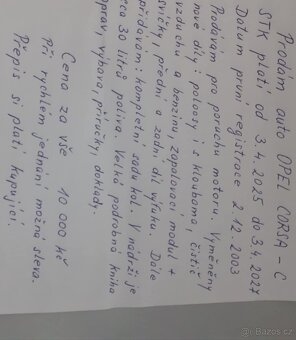 Prodám auto OPEL CORSA - C
STK platí od 3.4.2025 do 3.4.2027
Datum první registrace 2.12.2003
Prodávám pro poruchu motoru. Vyměněny
nové díly: poloosy i s kloubama, čistič
vzduchu a benzínu, zapalovací modul +
svíčky, přední a zadní díl výfuku. Dále
přidávám: kompletní sadu kol. V nádrži je
cca 30 litrů paliva. Velká podrobná kniha
oprav, výbava, příručky, doklady.
Cena za vše 10 000 Kč
Při rychlém jednání možná sleva.
Přepis si platí kupující.
Bazos.cz